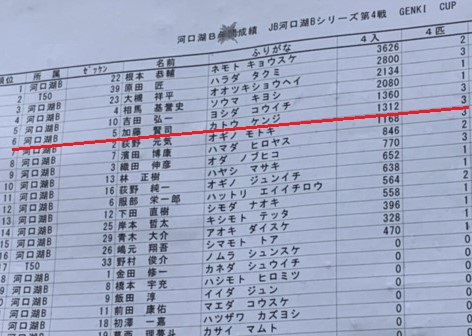 河口湖B 成績 JB河口湖Bシリーズ第4戦 GENKI CUP
順位 所属 ゼッケン 名前 ふりがな 4入 4匹
1 河口湖B 22 根本 恭輔 ネモト キョウスケ 3626 2
2 T50 39 原田 匠 ハラダ タクミ 2800 3
3 河口湖B 23 大槻 祥平 オオツキショウヘイ 2134 1
4 河口湖B 36 相馬 基誉史 ソウマ キヨシ 2080
5 河口湖B 10 吉田 弘一 ヨシダ コウイチ 1360 3
6 河口湖B 5 加藤 賢司 カトウ ケンジ 1312 3
河口湖B 2 荻野 元気 オギノ モトキ 1168
8 河口湖B 7 濱田 博康 ハマダ ヒロヤス 846 2
9 河口湖B 3 織田 伸彦 オダ ノブヒコ 770 1
10 河口湖B 13 林 正樹 ハヤシ マサキ
11 河口湖B 16 荻野 純一 オギノ ジュンイチ 564
12 河口湖B 6 服部 栄一郎 ハットリ エイイチロウ 558
13 河口湖B 12 下田 直樹 シモダ ナオキ 396 1
14 河口湖B 25 岸本 哲太 キシモト テッタ 328 1
15 河口湖B 29 青木 大介 アオキ ダイスケ 470 1
16 河口湖B 26 嶋元 翔吾 シマモト 0 0
17 T50 33 野村 俊介 ノムラ シュンスケ 0 0
河口湖B 1 金田 修一 カネダ シュウイチ 0 0
河口湖B 8 橋本 宇充 ハシモト ヒロミツ 0 0
河口湖B 9 飯田 淳 イイダ ジュン 0 0
河口湖B 11 前田 康佑 マエダ コウスケ 0 0
河口湖B 18 初澤 一嘉 ハツザワ カズヨシ 0 0
カサイ マムト